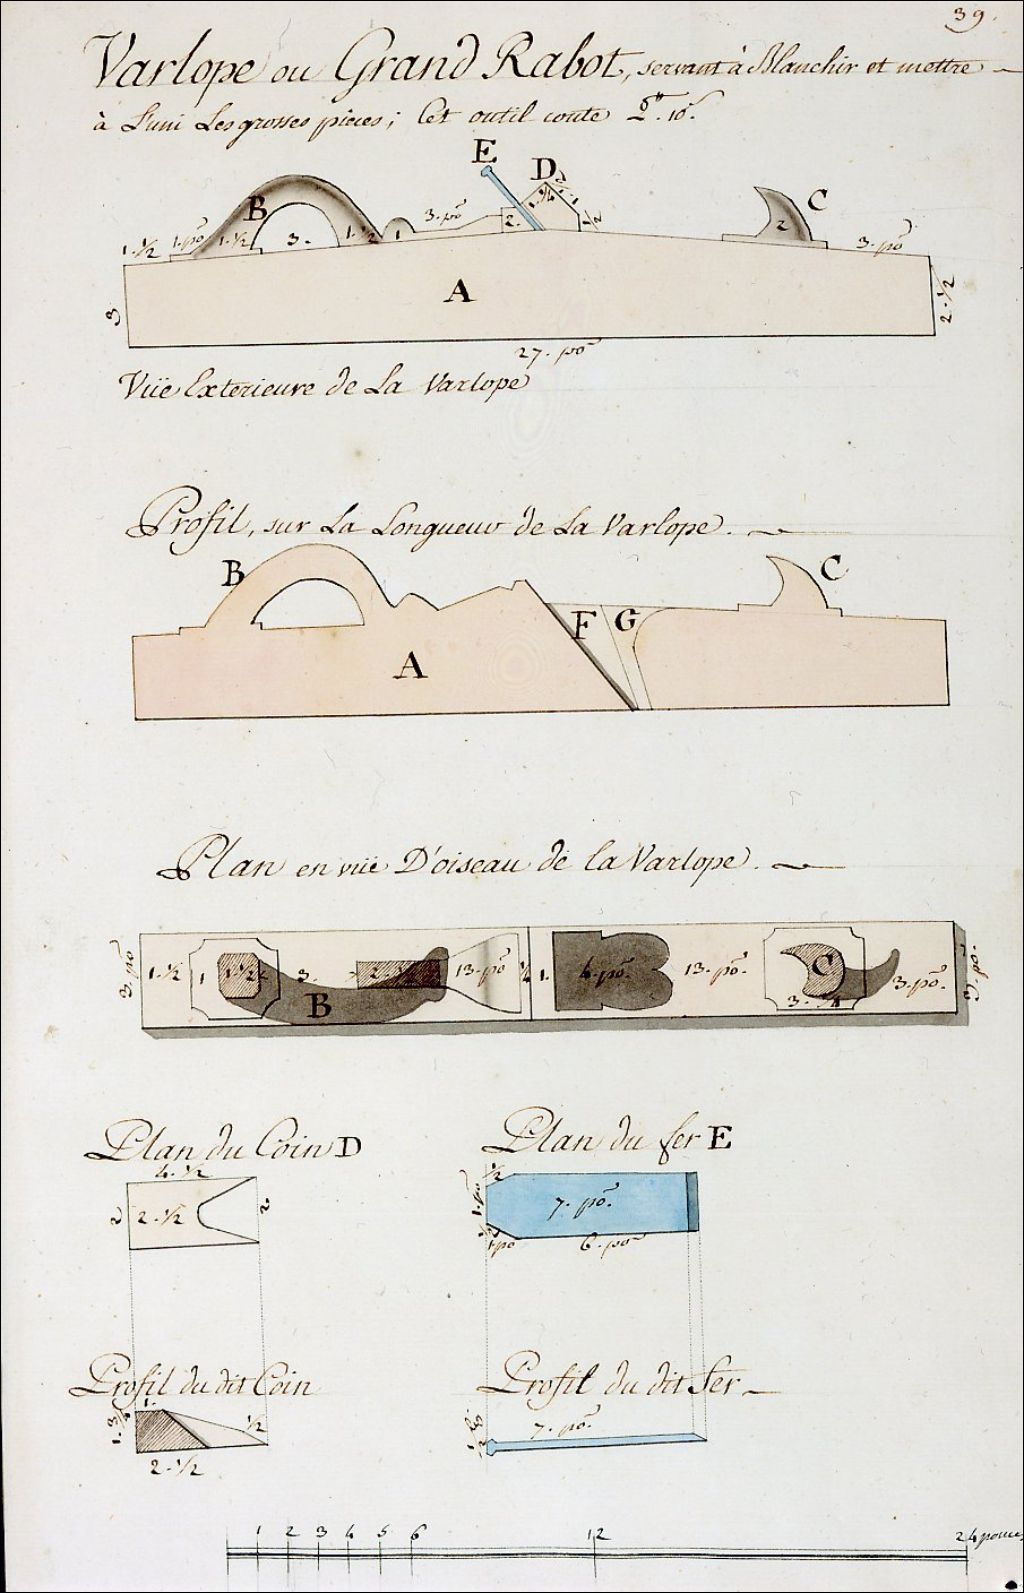 39.
Varlope ou Grand Rabot, servant à Blanchir et mettre
à L'uni Les grosses pieces; Cet outil coute 2.# 10.s
E
D
B
C
1.½ 1.po 1.½ 3. 1.½ 1 3.po 2. 1.¾ 1 ½ 2 3.po
A
3
2.½
27. po
Vüe Exterieure de La Varlope
Profil, sur La Longueur de La Varlope.
B
C
F G
A
Plan en vüe D'oiseau de la Varlope.
3.po 1.½ 1 1.½ 3. 2.½ 13.po ½ 1. 4.po. 13.po. C 3.po. 3.po.
B
3.¼
Plan du Coin D
4.½
2 2.½ 2
Plan du fer E
½
1.po 7. po.
½
1po 6.po
Profil du dit Coin
1.
1.¾ ½
2.½
Profil du dit Fer
7. po.
1 2 3 4 5 6 12 24 pouces